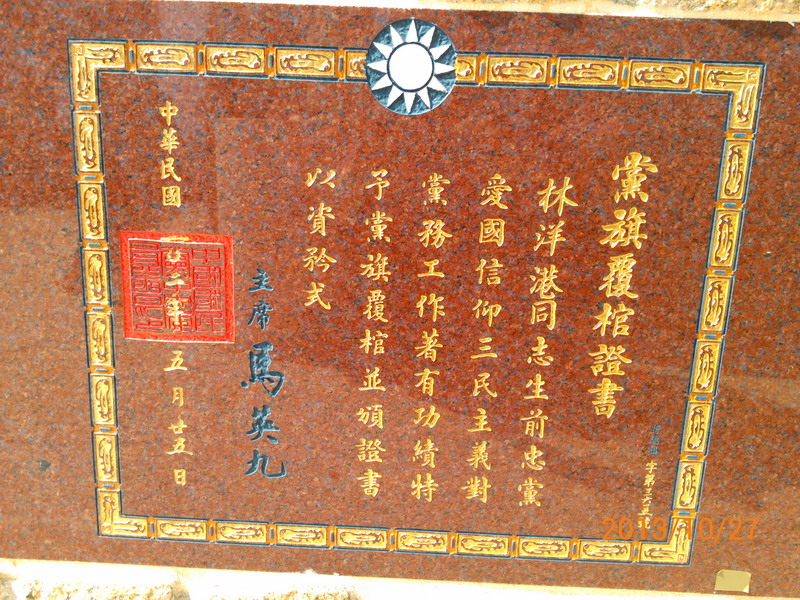 黨旗覆棺證書
字第三六五號
林洋港同志生前忠黨
愛國信仰三民主義對
黨務工作著有功績特
予黨旗覆棺並頒證書
以資矜式
主席 馬英九
中華民國一〇二年五月廿五日
2013/10/27